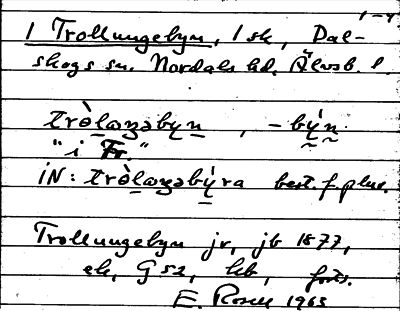 1-4
1 Trollungebyn, 1 sk, Dal-
skogs sn. Nordals hd. Älvsb. l.
tròlaŋəbyn, -bý̀n
"i Tr."
iN: tròlaŋəbýra best. f. plur.
Trollungebyn jr, jb 1877,
ek, G52, hb,
E. Rosell 1963